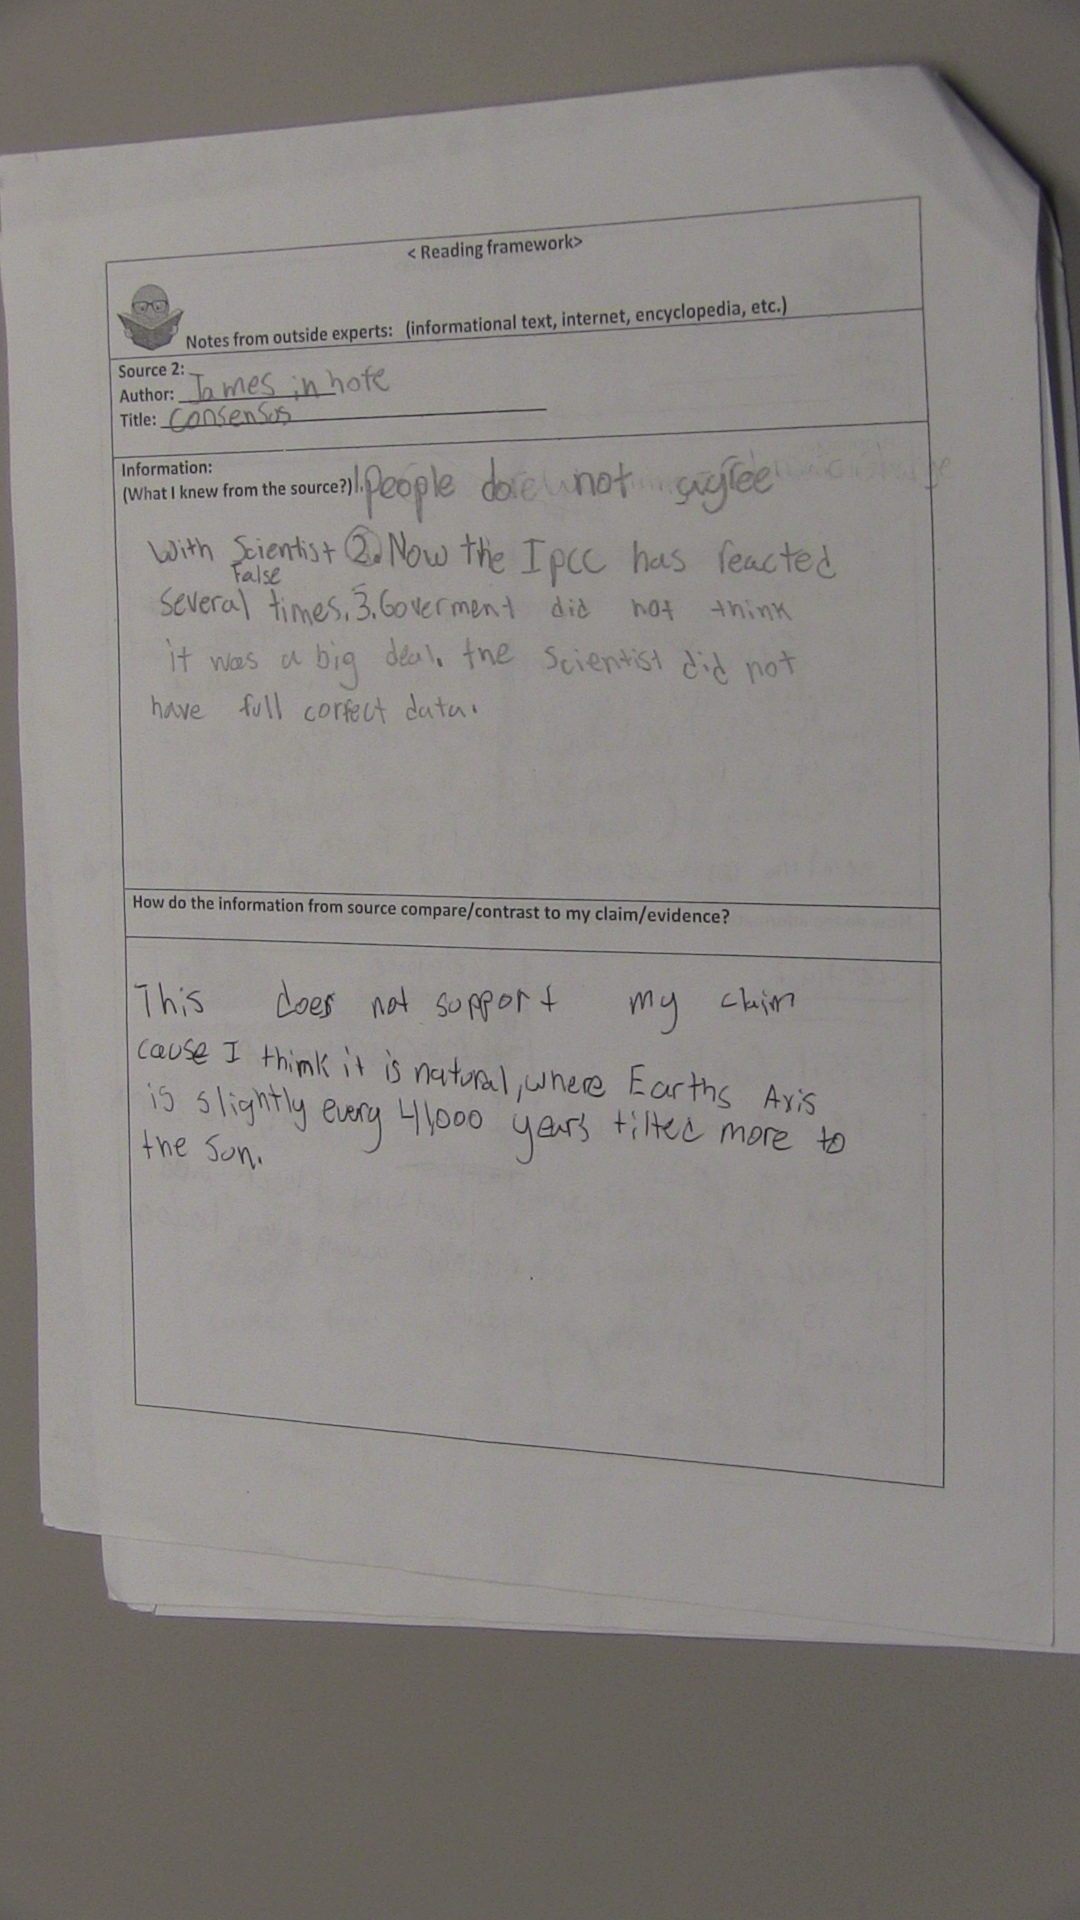 < Reading framework>
Notes from outside experts: (informational text, internet, encyclopedia, etc.)
Source 2:
Author: James inhofe
Title: Consensus
Information:
(What I knew from the source?) 1. People do not agree
With Scientist 2. Now the Ipcc has reacted
False
Several times. 3. Goverment did not think
it was a big deal. the Scientist did not
have full correct data.
How do the information from source compare/contrast to my claim/evidence?
This does not support my claim
cause I think it is natural, where Earths Axis
is slightly every 41,000 years tilted more to
the Sun.